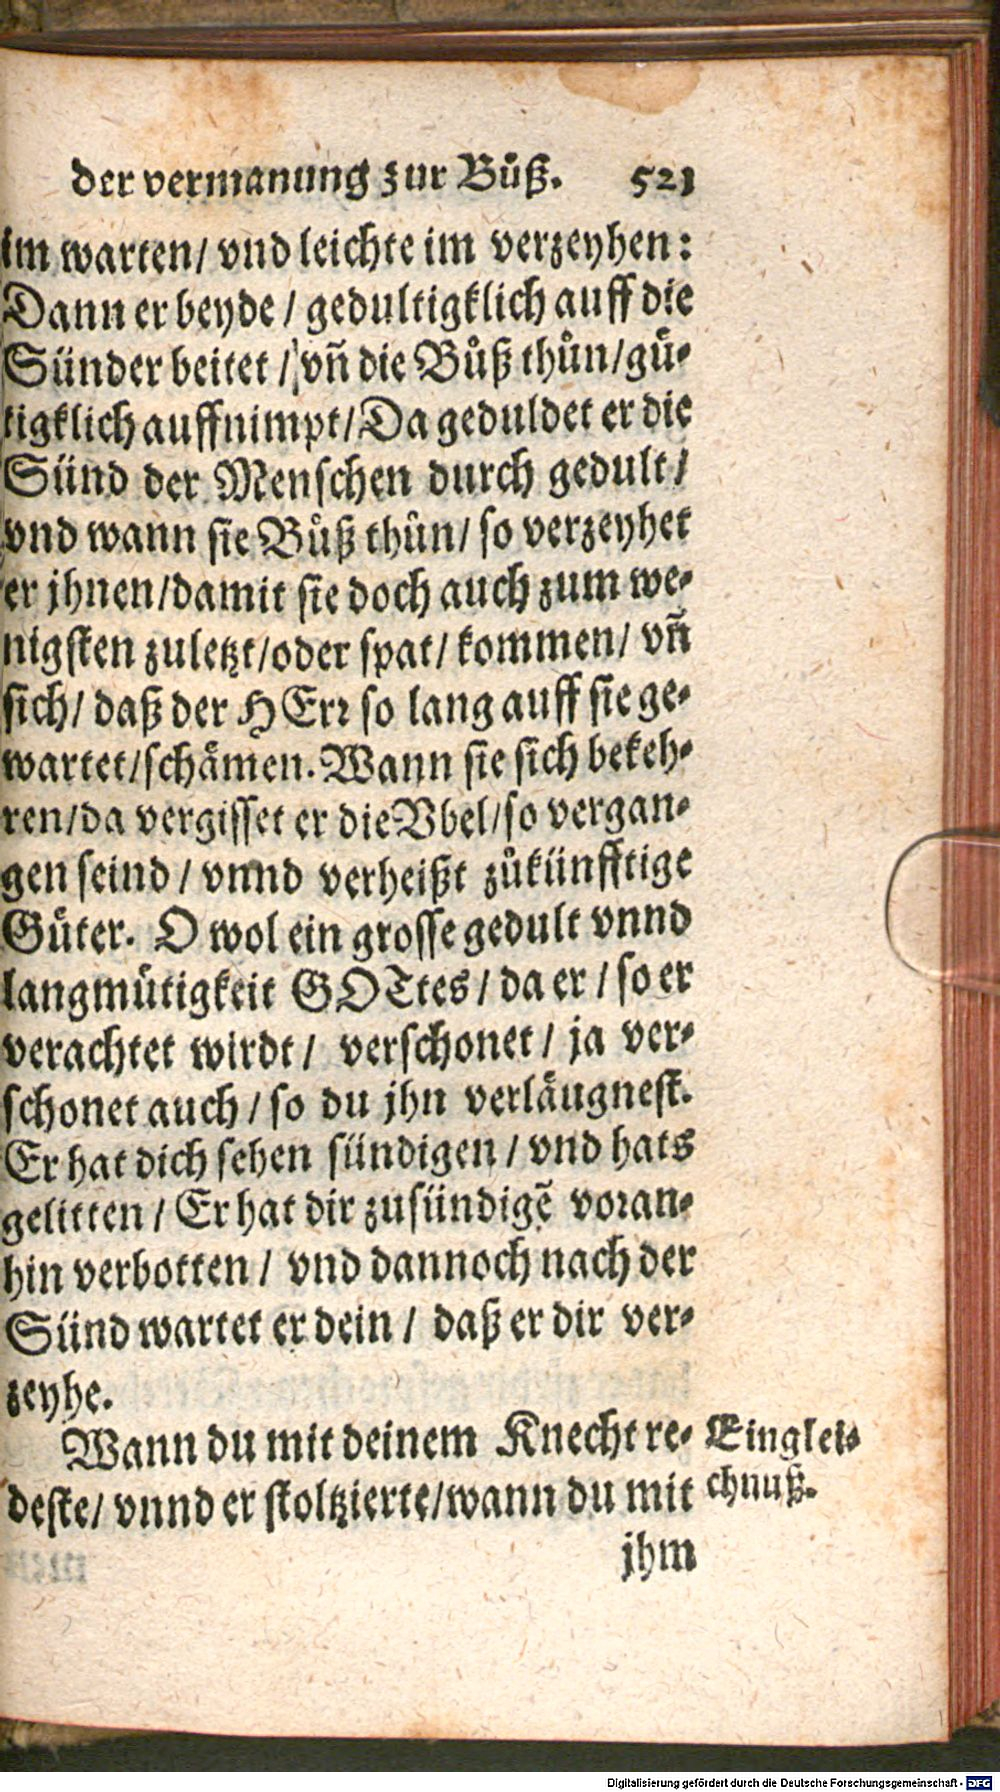 der vermanung zur Bůß. 521
im warten/ vnd leichte im verzeyhen:
Dann er beyde / gedultigklich auff die
Sünder beitet / vñ die Bůß thůn/gü-
tigklich auffnimpt/Da geduldet er die
Sünd der Menschen durch gedult /
vnd wann sie Bůß thůn/ so verzeyhet
er jhnen/damit sie doch auch zum we-
nigsten zuletzt/oder spat/ kommen/ vñ
sich/ daß der HErr so lang auff sie ge-
wartet/schämen. Wann sie sich bekeh-
ren/da vergisset er die Vbel/so vergan-
gen seind / vnnd verheißt zůkünfftige
Güter. O wol ein grosse gedult vnnd
langmütigkeit GOTtes / da er / so er
verachtet wirdt / verschonet / ja ver-
schonet auch / so du jhn verläugnest.
Er hat dich sehen sündigen / vnd hats
gelitten / Er hat dir zusündigẽ voran-
hin verbotten / vnd dannoch nach der
Sünd wartet er dein / daß er dir ver-
zeyhe.
Wann du mit deinem Knecht re-
deste/ vnnd er stoltzierte/wann du mit
jhm
Ein glei-
chnuß.
Digitalisierung gefördert durch die Deutsche Forschungsgemeinschaft - DFG